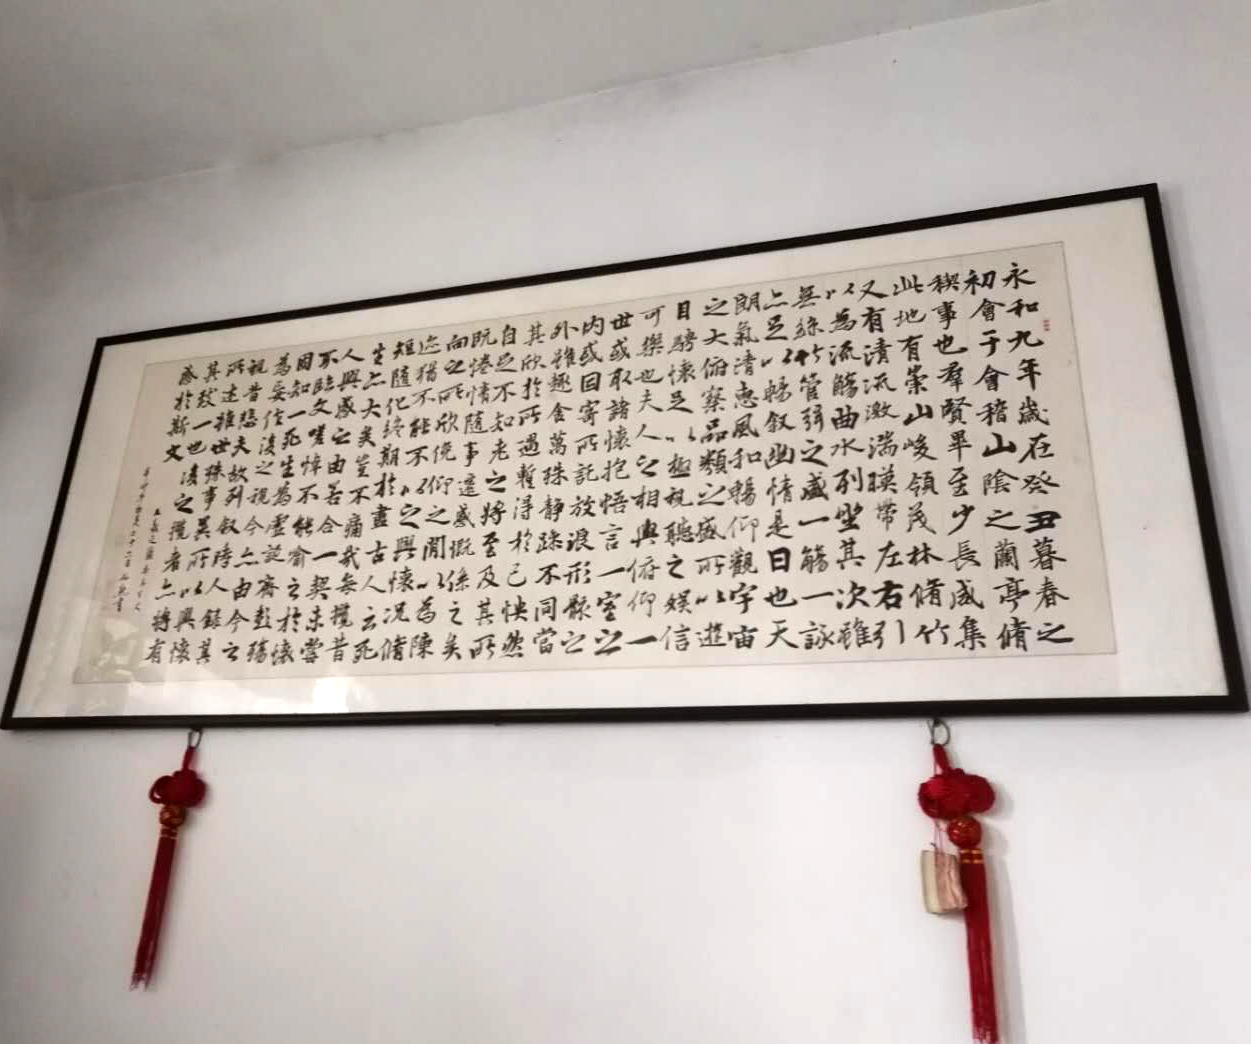 永和九年歲在癸丑暮春之
初會于會稽山陰之蘭亭脩
禊事也羣賢畢至少長咸集
此地有崇山峻領茂林脩竹
又有清流激湍暎帶左右引
以為流觴曲水列坐其次雖
無絲竹管弦之盛一觴一詠
亦足以暢叙幽情是日也天
朗氣清惠風和暢仰觀宇宙
之大俯察品類之盛所以遊
目騁懷足以極視聽之娛信
可樂也夫人之相與俯仰一
世或取諸懷抱悟言一室之
内或因寄所託放浪形骸之
外雖趣舍萬殊靜躁不同當
其欣於所遇暫得於己怏然
自足不知老之將至及其所
既惓情隨事遷感慨係之矣
向之所欣俛仰之閒以為陳
迹猶不能不以之興懷況脩
短隨化終期於盡古人云死
生亦大矣豈不痛哉每攬昔
人興感之由若合一契未嘗
不臨文嗟悼不能喻之於懷
固知一死生為虛誕齊彭殤
為妄作後之視今亦由今之
視昔悲夫故列叙時人錄其
所述雖世殊事異所以興懷
其致一也後之攬者亦將有
感於斯文